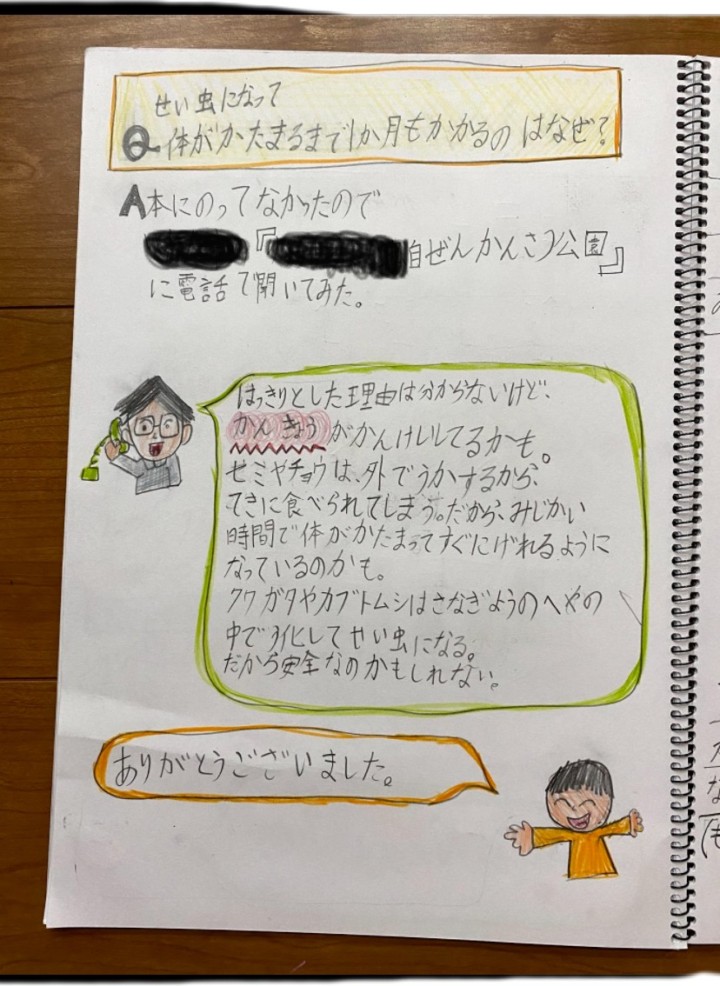 せい虫になって
Q体がかたまるまで1か月もかかるのはなぜ?
A本にのってなかったので
『 自ぜんかんさつ公園』
に電話で聞いてみた。
はっきりとした理由は分からないけど、
かんきょうがかんけいしてるかも。
セミやチョウは、外でうかするから、
てきに食べられてしまう。だから、みじかい
時間で体がかたまってすぐににげれるように
なっているのかも。
クワガタやカブトムシはさなぎようのへやの
中で羽化してせい虫になる。
だから安全なのかもしれない。
ありがとうございました。